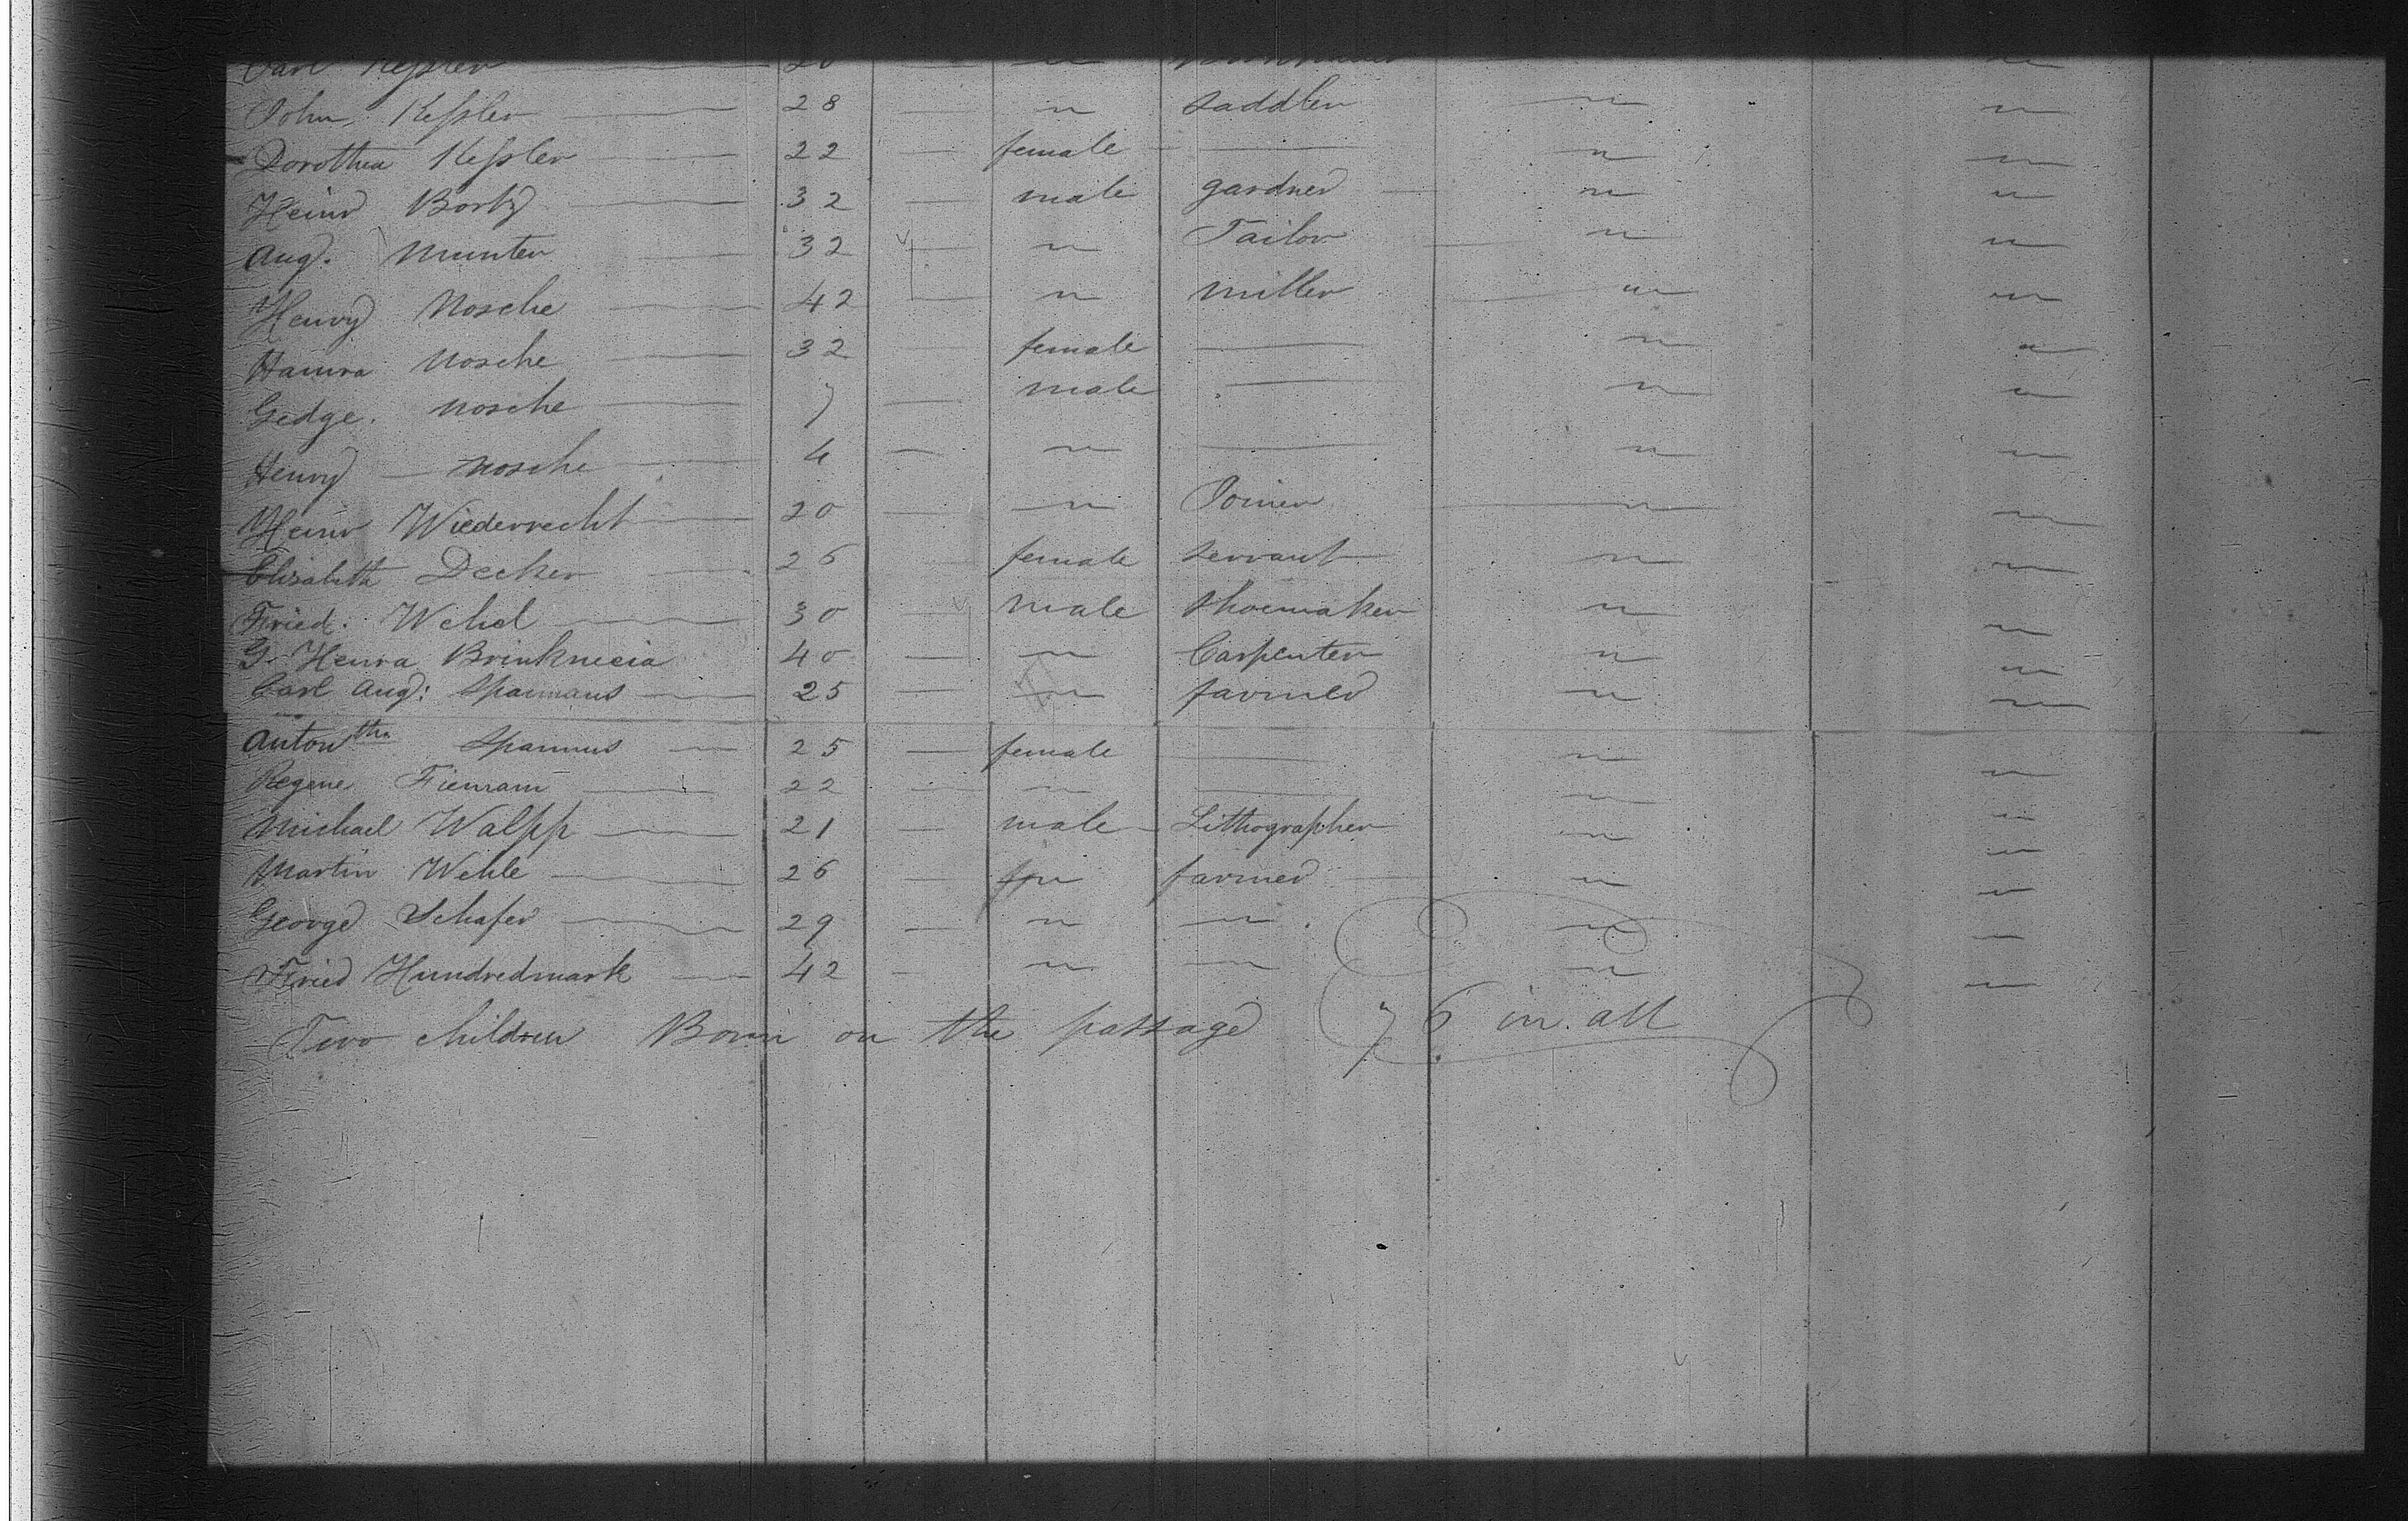 Carl Kessler — 20 — "
John Kessler — 28 — " saddler — " "
Dorothea Kessler — 22 — female — " "
Heinr Bortz — 32 — male gardner — " "
Aug. Munter — 32 — " Tailor — " "
Henry Nosche — 42 — " miller — " "
Nosche — 32 — female — " "
Nosche — 7 — male — " "
Henry — Nosche — 4 — " — " "
Heinr Wiederrecht — 20 — " Joiner — " "
Elisabeth Decker — 26 female servant — " "
Fried. Wehel — 30 — male shoemaker " "
G. Henra 40 — " Carpenter " "
Carl Aug: Spannaus — 25 — " farmer " "
Anton tha Spannus — 25 — female — " "
Regene — 22 — " — " "
Michael Walpp — 21 — male — Lithographer " "
Martin Wehle — 26 — " farmer — " "
George Schafer — 29 — " " " "
Fried Hundredmark — 42 — " " " "
Two children Born on the passage 76 in all